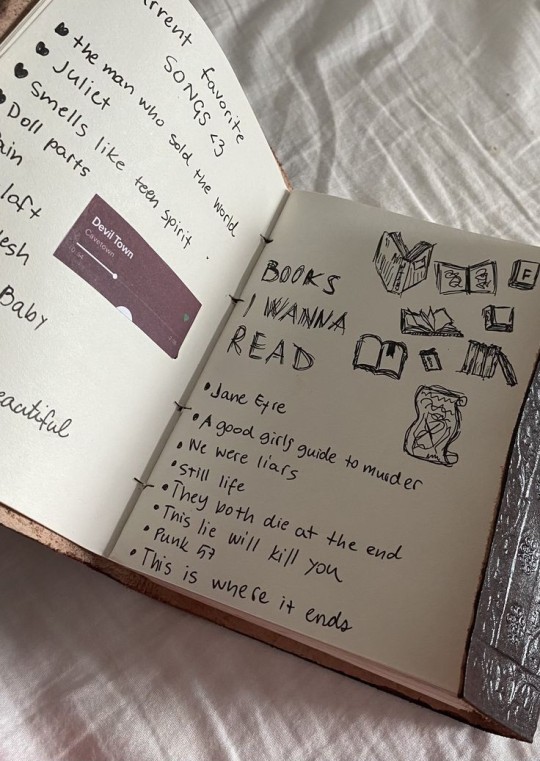 favorite
SONGS <3
the man who sold the world
Juliet
Smells like teen spirit
Doll parts
loft
Baby
Devil Town
Cavetown
BOOKS
I WANNA
READ
F
Jane Eyre
A good girls guide to murder
We were liars
Still life
They both die at the end
This lie will kill you
Punk 57
This is where it ends